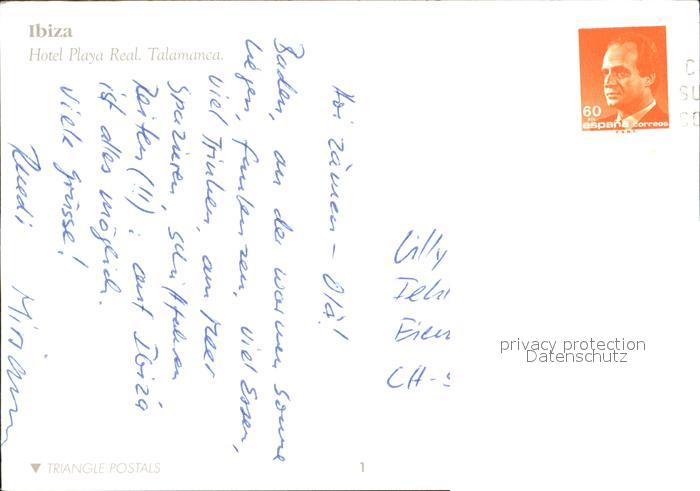 Ibiza
Hotel Playa Real. Talamanca.
Hoi zämen - Olà!
Baden, an der warmen Sonne
liegen, faulenzen, viel Essen,
viel Trinken, am Meer
spazieren, Schifffahren
Reiten (!!) : auf Ibiza
ist alles möglich.
Viele Grüsse!
Ruedi Miriam
60
españa correos
Lilly
CH-
privacy protection
Datenschutz
▼ TRIANGLE POSTALS
1